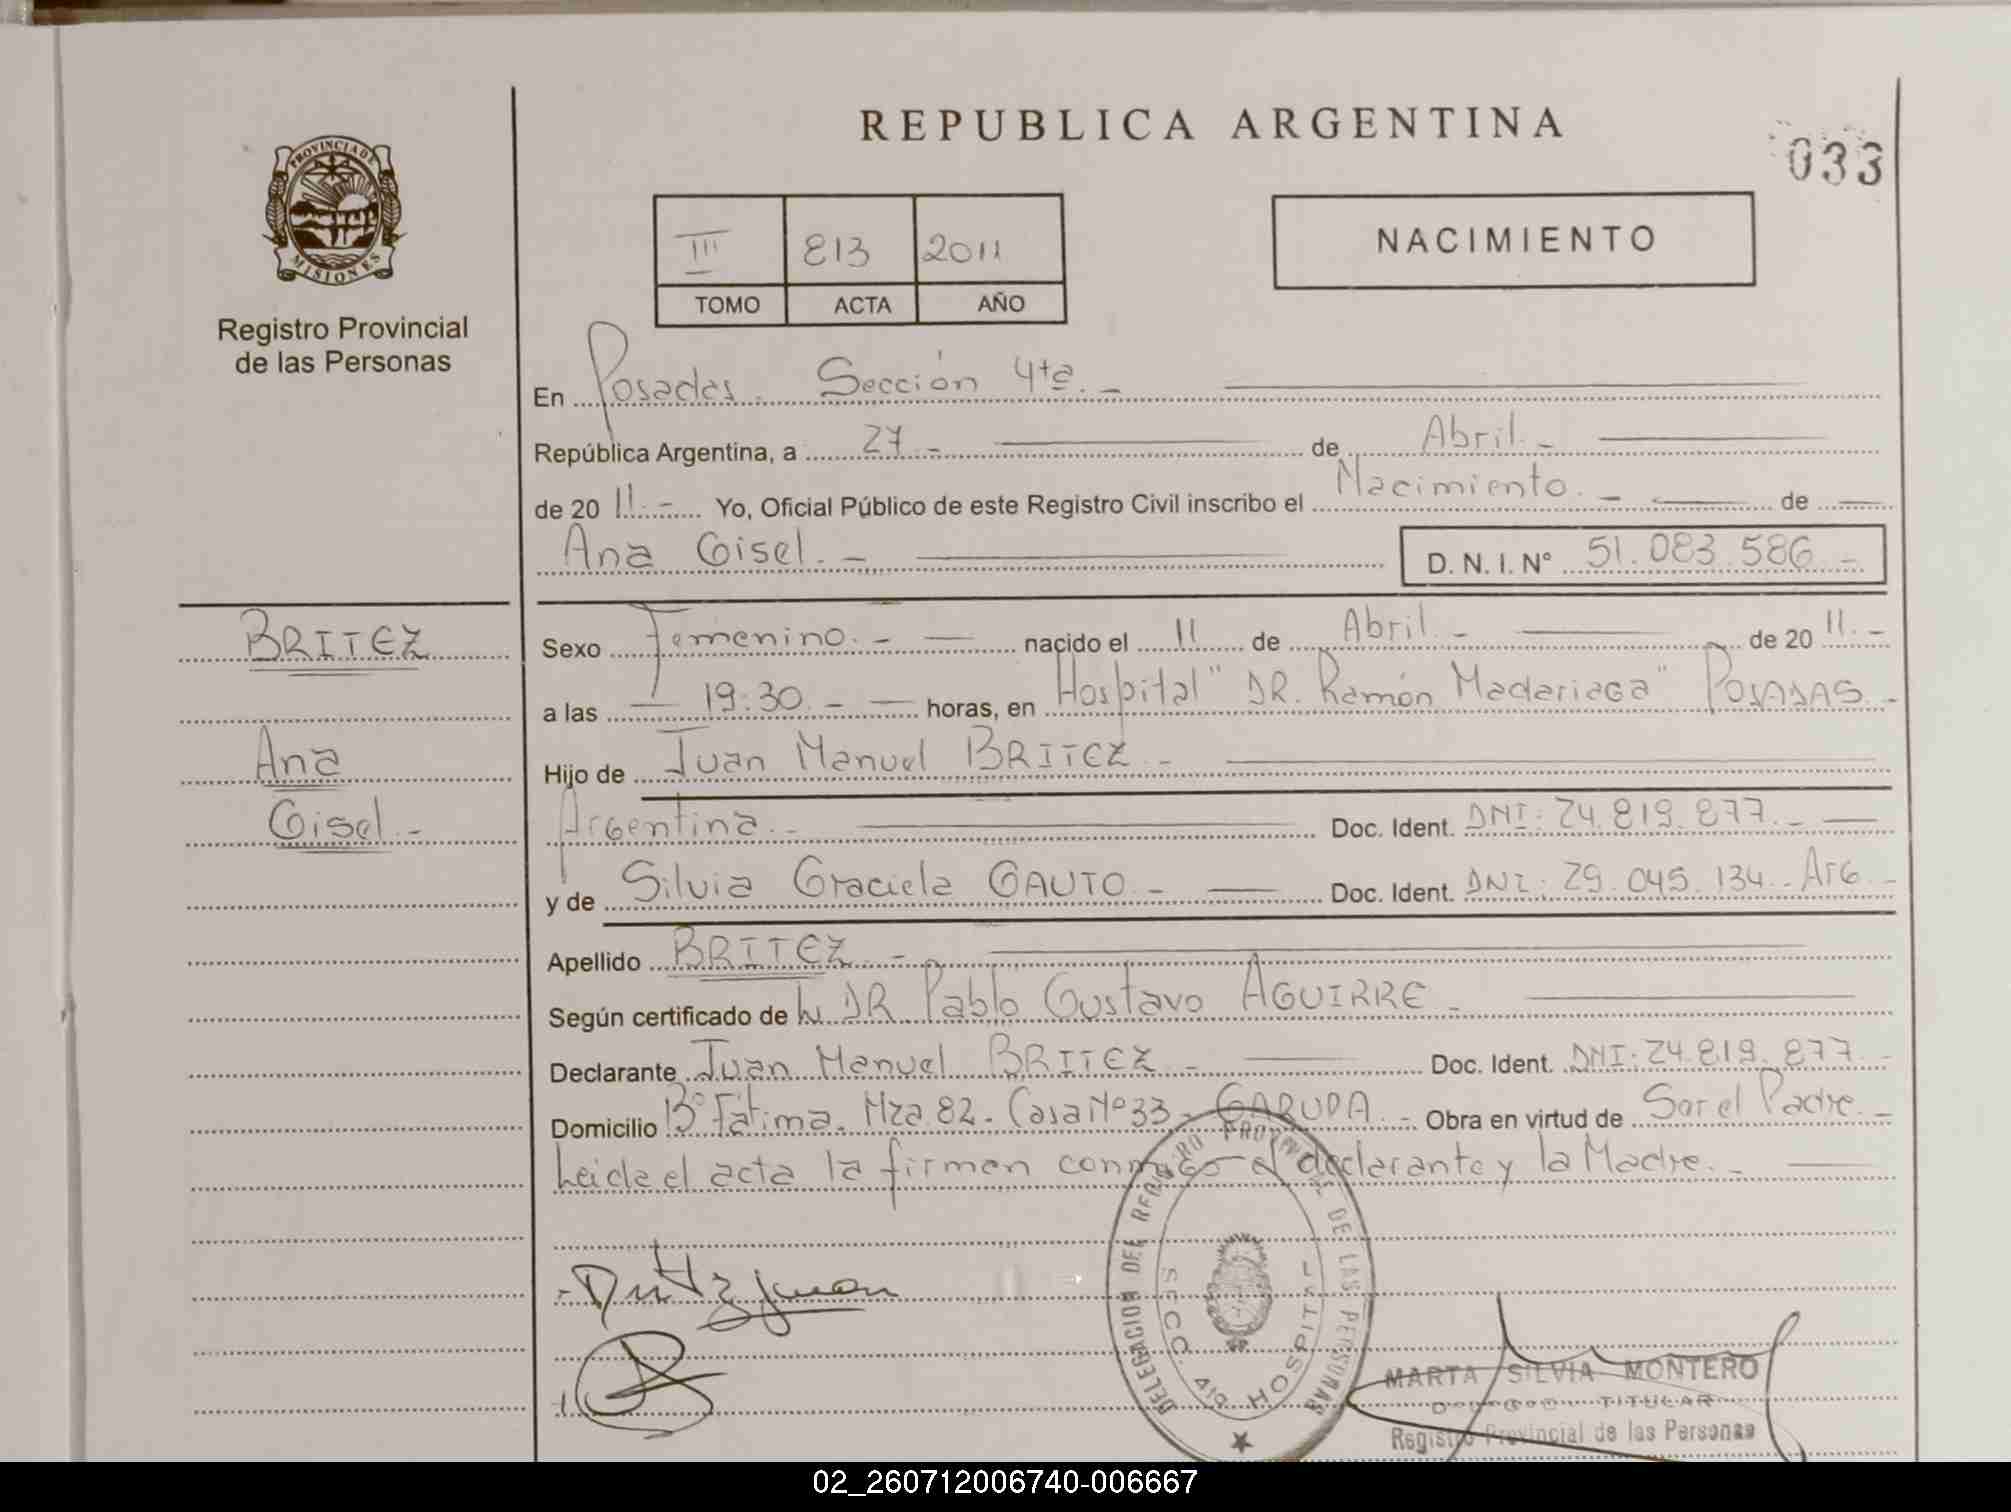 REPUBLICA ARGENTINA
033
PROVINCIA DE
MISIONES
Registro Provincial
de las Personas
III 813 2011
TOMO ACTA AÑO
NACIMIENTO
En Posadas. Sección 4ta.-
República Argentina, a 27.- de Abril.-
de 2011.- Yo, Oficial Público de este Registro Civil inscribo el Nacimiento.- de
Ana Gisel.- D. N. I. Nº 51.083.586.-
BRITEZ
Ana
Gisel.-
Sexo Femenino.- nacido el 11 de Abril.- de 2011.-
a las 19:30.- horas, en Hospital "DR. Ramón Madariaga" POSADAS.-
Hijo de Juan Manuel BRITEZ.-
Argentina.- Doc. Ident. DNI: 24.819.877.-
y de Silvia Graciela GAUTO.- Doc. Ident. DNI: 29.045.134.- Arg.-
Apellido BRITEZ.-
Según certificado de DR Pablo Gustavo AGUIRRE.-
Declarante Juan Manuel BRITEZ.- Doc. Ident. DNI: 24.819.877.-
Domicilio Bº Fátima. Mza. 82.- Casa Nº 33.- GARUPA.- Obra en virtud de Ser el Padre.-
Leida el acta la firman conmigo el declarante y la Madre.-
DELEGACION DEL REGISTRO PROVINCIAL DE LAS PERSONAS
SECC. 4ta HOSPITAL
MARTA SILVIA MONTERO
TITULAR
Registro Provincial de las Personas
02_260712006740-006667